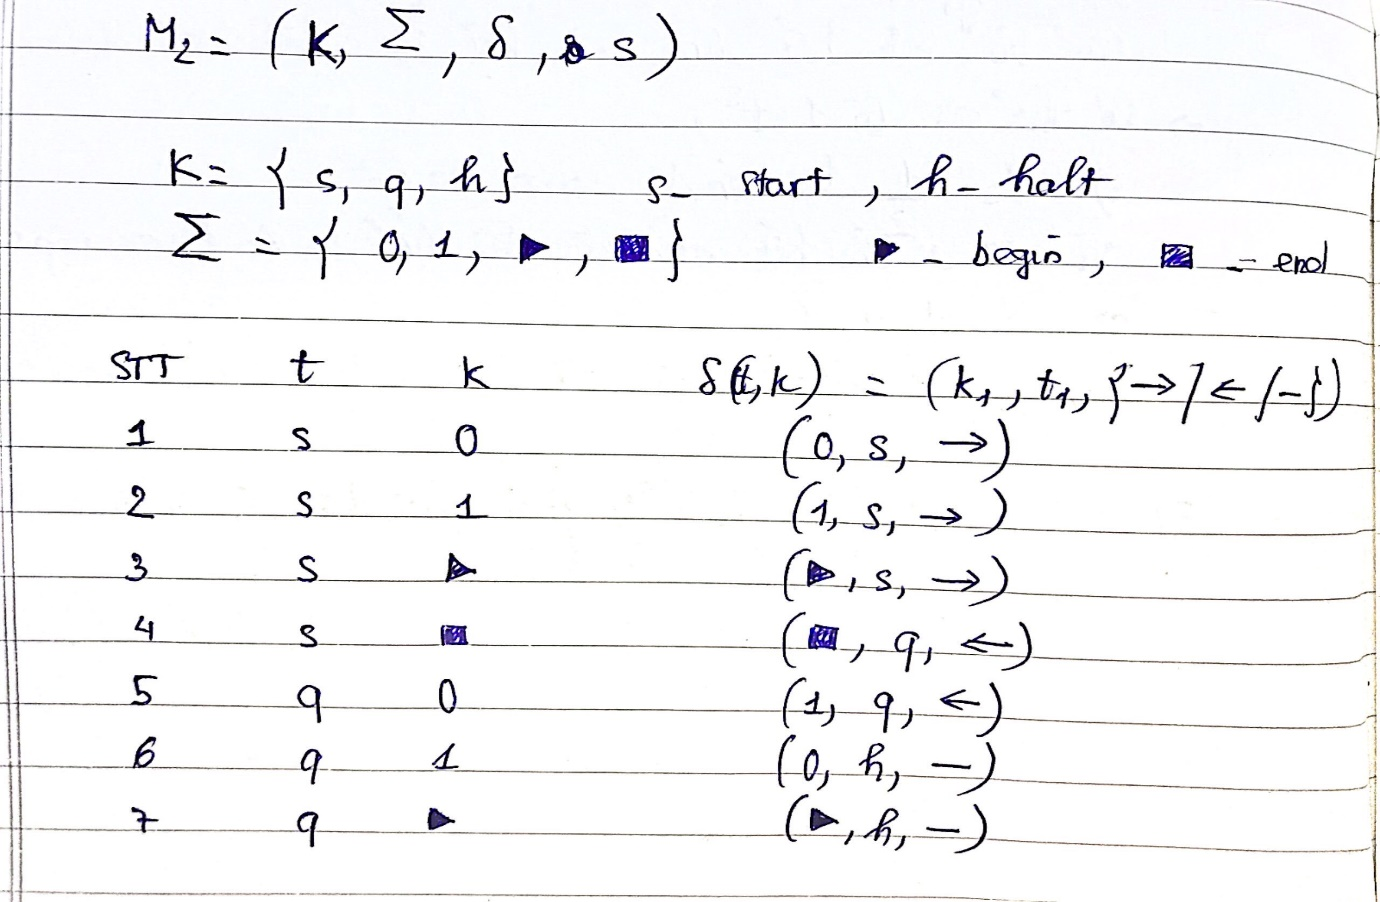 M₂ = (K, Σ, δ, s)
K = { s, q, h } s - start, h - halt
Σ = { 0, 1, ▶, ■ } ▶ - begin, ■ - end
STT t k δ(t,k) = (k₁, t₁, {→/←/-})
1 s 0 (0, s, →)
2 s 1 (1, s, →)
3 s ▶ (▶, s, →)
4 s ■ (■, q, ←)
5 q 0 (1, q, ←)
6 q 1 (0, h, -)
7 q ▶ (▶, h, -)